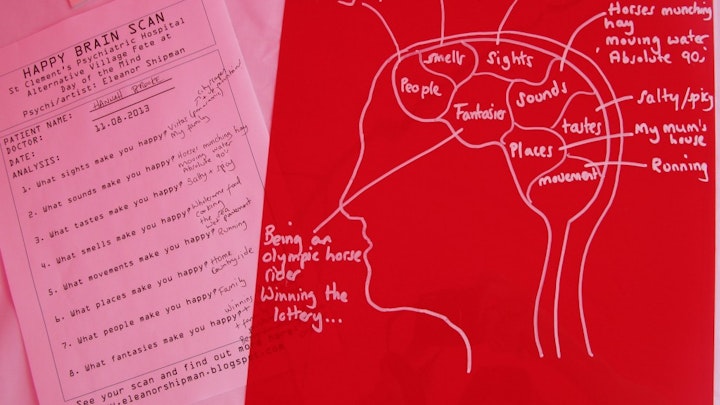 HAPPY BRAIN SCAN
St Clement's Psychiatric Hospital
Alternative Village Fete at
Day of the Mind
Psychi/artist: Eleanor Shipman
PATIENT NAME: HANNAH
DOCTOR:
DATE: 11.08.2013
ANALYSIS:
1. What sights make you happy?
my family
2. What sounds make you happy? Horses munching hay
moving water
Absolute 90's
3. What tastes make you happy? Salty & spicy
4. What smells make you happy? Wholesome food
cooking
the sea
wet pavement
5. What movements make you happy? Running
6. What places make you happy? Home
Countryside
7. What people make you happy? Family
8. What fantasies make you happy? Winning
See your scan and find out more
www.eleanorshipman.blogspot
smells
sights
People
Fantasies
sounds
tastes
Places
movement
Horses munching
hay
moving water
'Absolute 90's'
Salty/spicy
My mum's
house
Running
Being an
olympic horse
rider
Winning the
lottery...